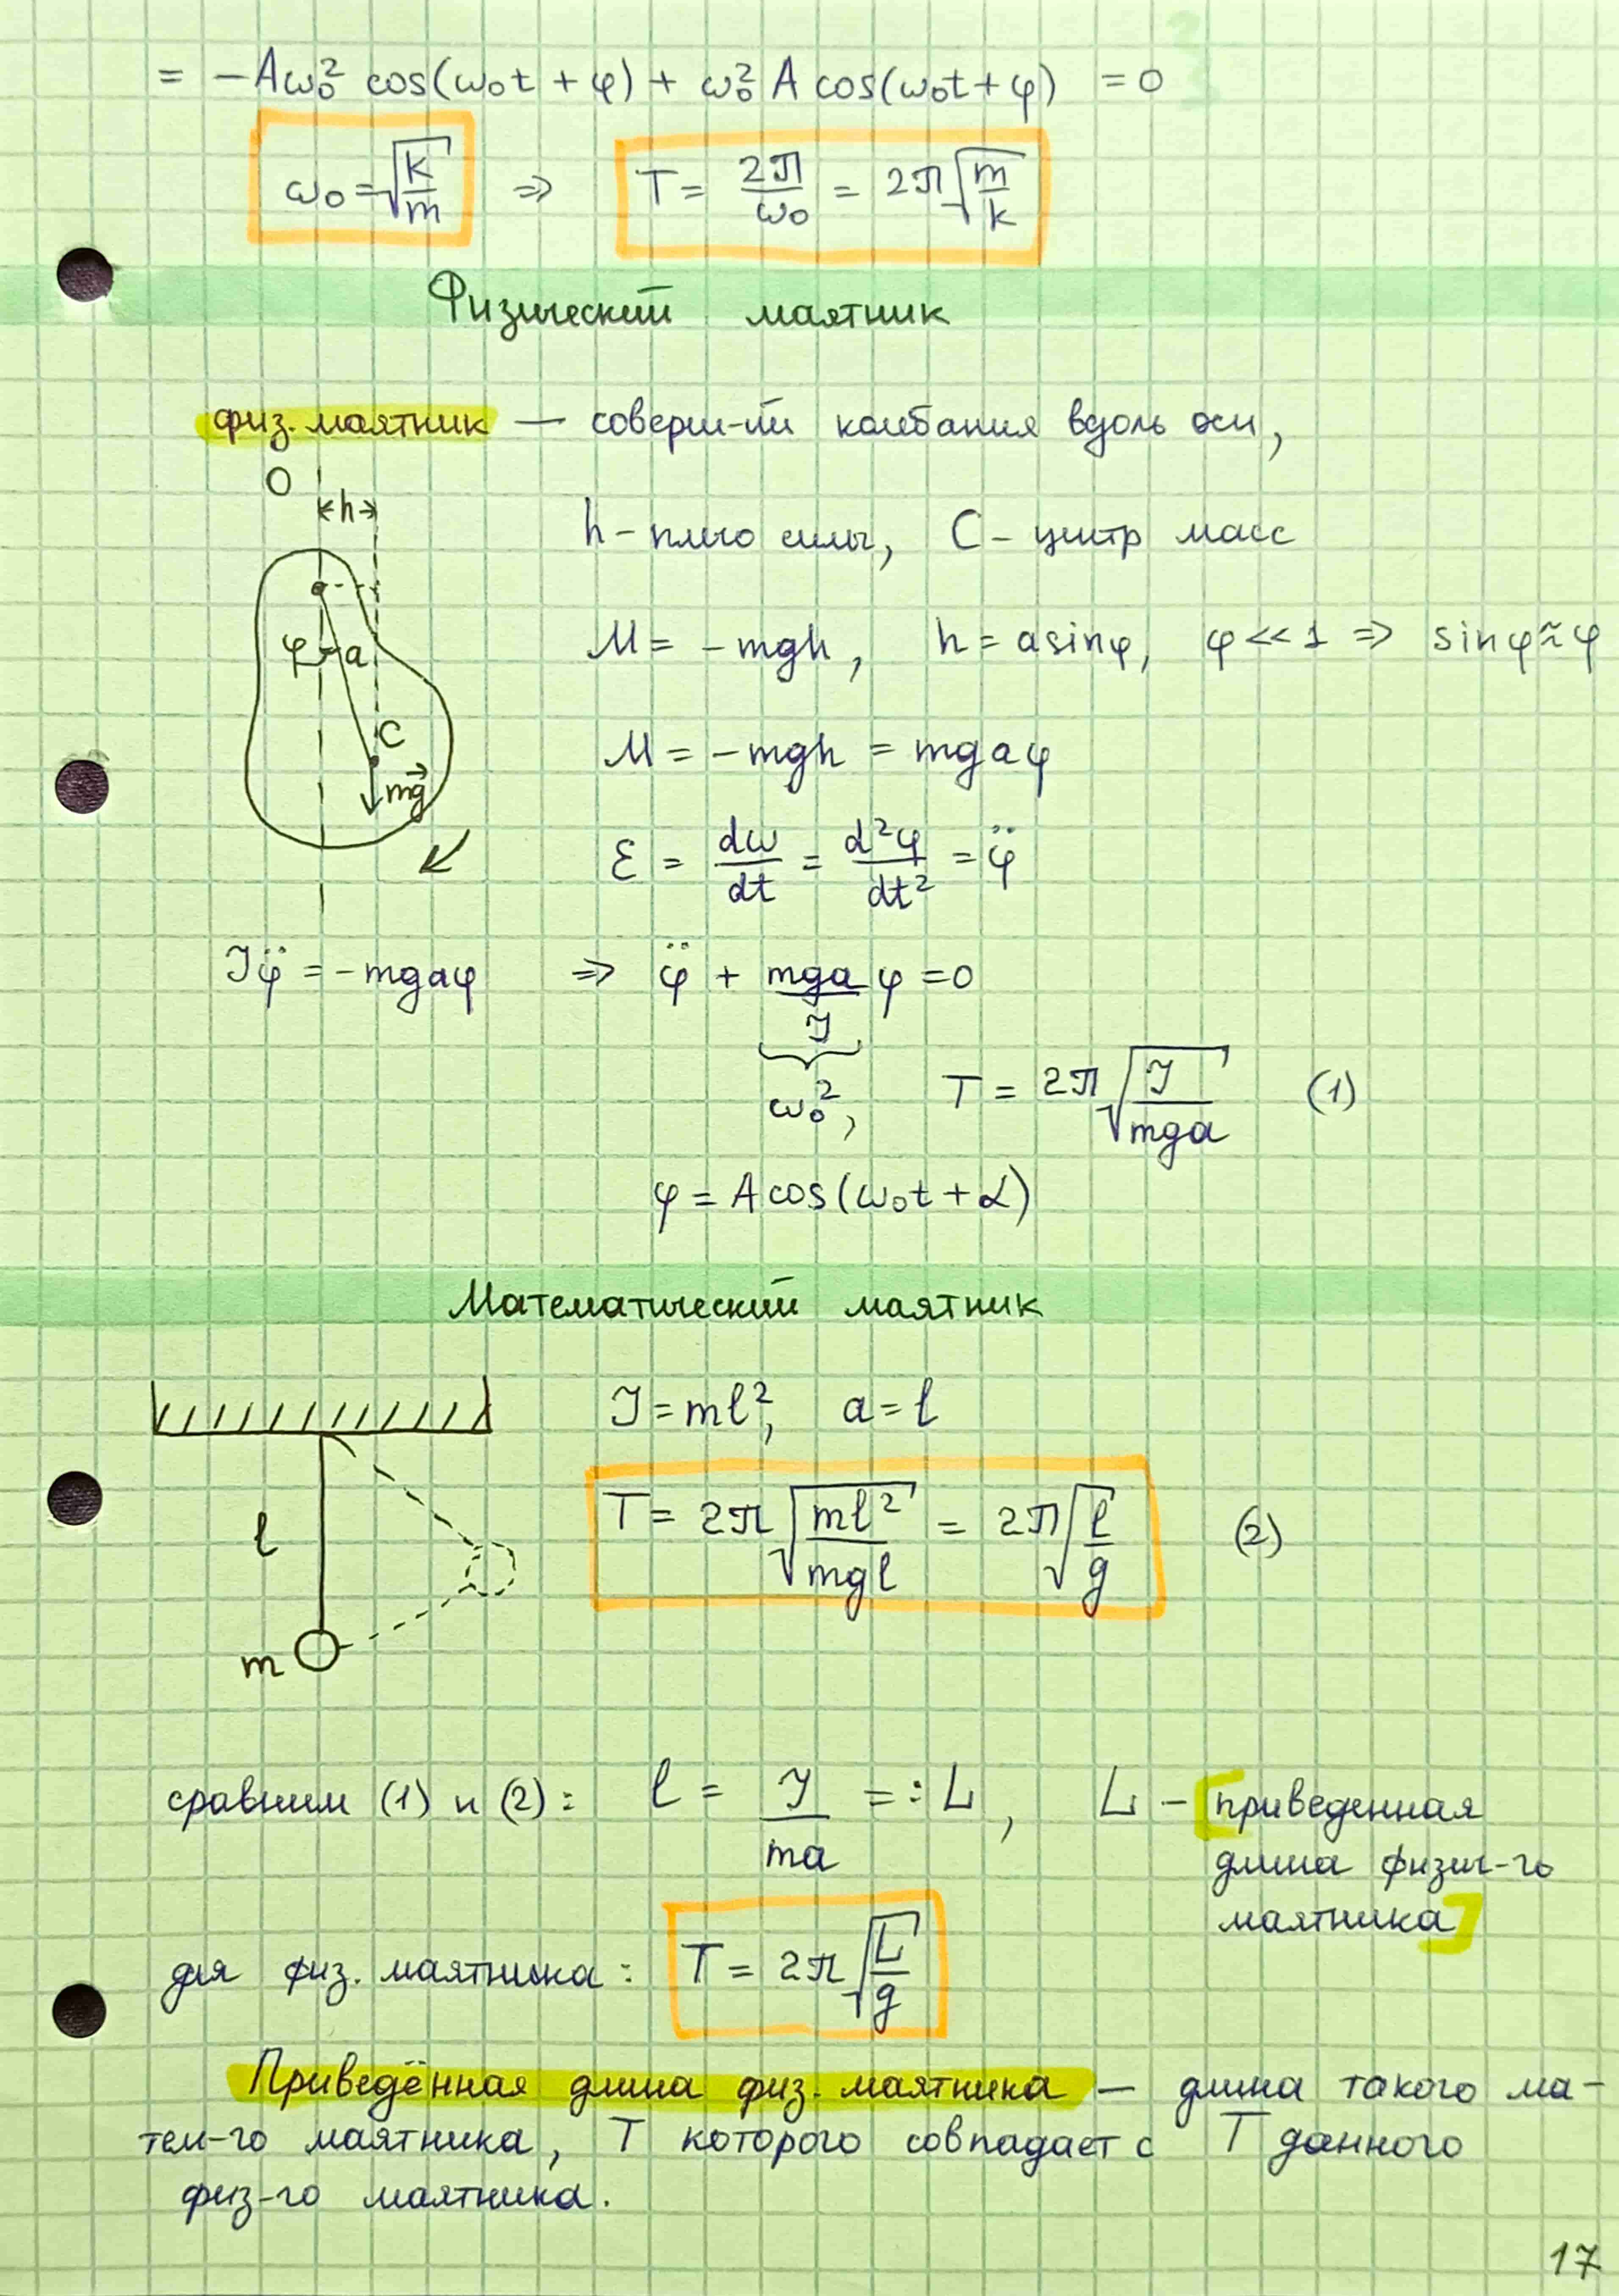 = −Aω₀² cos(ω₀t + φ) + ω₀² A cos(ω₀t + φ) = 0
ω₀ = √(k/m) ⇒ T = 2π/ω₀ = 2π√(m/k)
Физический маятник
физ. маятник — соверш-ий колебания вдоль оси,
O
h
h – плечо силы, C – центр масс
φ a
M = −mgh, h = a sinφ, φ << 1 ⇒ sinφ ≈ φ
C
M = −mgh = mgaφ
mg⃗
ε = dω/dt = d²φ/dt² = φ̈
Jφ̈ = −mgaφ ⇒ φ̈ + mga/J φ = 0
ω₀², T = 2π√(J/mga) (1)
φ = A cos(ω₀t + α)
Математический маятник
J = ml², a = l
l
T = 2π√(ml²/mgl) = 2π√(l/g) (2)
m
сравним (1) и (2): l = J/ma =: L, L – [приведенная
длина физич-го
маятника]
для физ. маятника: T = 2π√(L/g)
Приведённая длина физ. маятника — длина такого ма-
тем-го маятника, T которого совпадает с T данного
физ-го маятника.
17